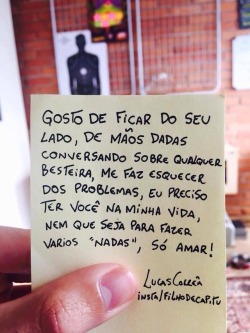 GOSTO DE FICAR DO SEU
LADO, DE MÃOS DADAS
CONVERSANDO SOBRE QUALQUER
BESTEIRA, ME FAZ ESQUECER
DOS PROBLEMAS, EU PRECISO
TER VOCÊ NA MINHA VIDA,
NEM QUE SEJA PARA FAZER
VARIOS "NADAS", SÓ AMAR!
LUCAS CORRÊA
INSTA/FILHODECAP.TU